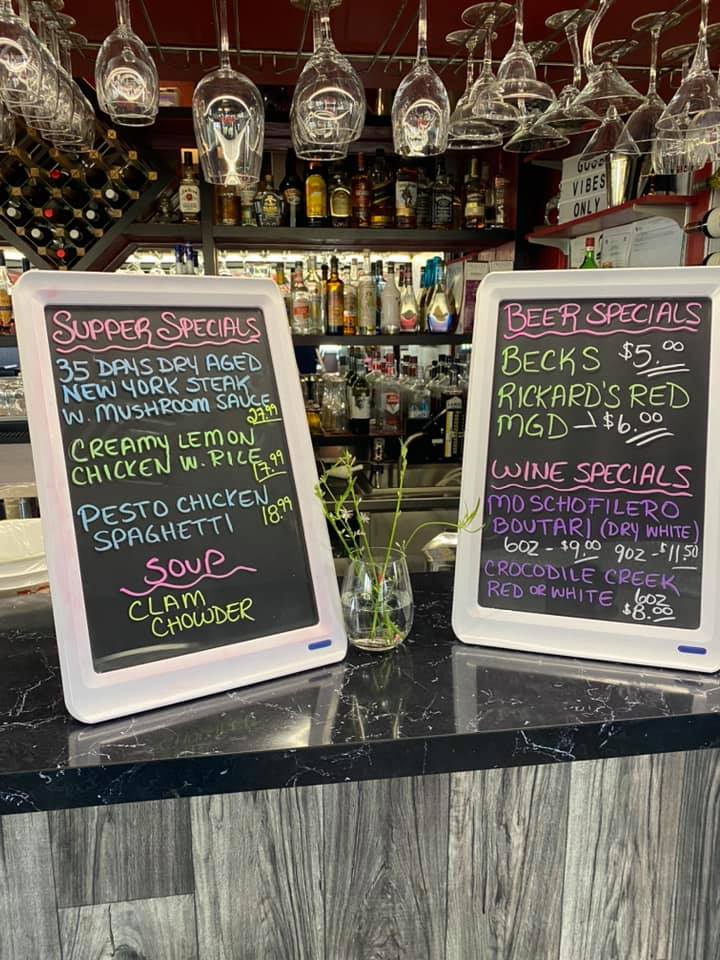 GOOD
VIBES
ONLY
SUPPER SPECIALS
35 DAYS DRY AGED
NEW YORK STEAK
W. MUSHROOM SAUCE
27.99
CREAMY LEMON
CHICKEN W. RICE
17.99
PESTO CHICKEN
SPAGHETTI 18.99
SOUP
CLAM
CHOWDER
BEER SPECIALS
BECKS $5.00
RICKARD'S RED
MGD $6.00
WINE SPECIALS
MOSCHOFILERO
BOUTARI (DRY WHITE)
6OZ - $9.00 9OZ - $11.50
CROCODILE CREEK
RED OR WHITE 6OZ
$8.00